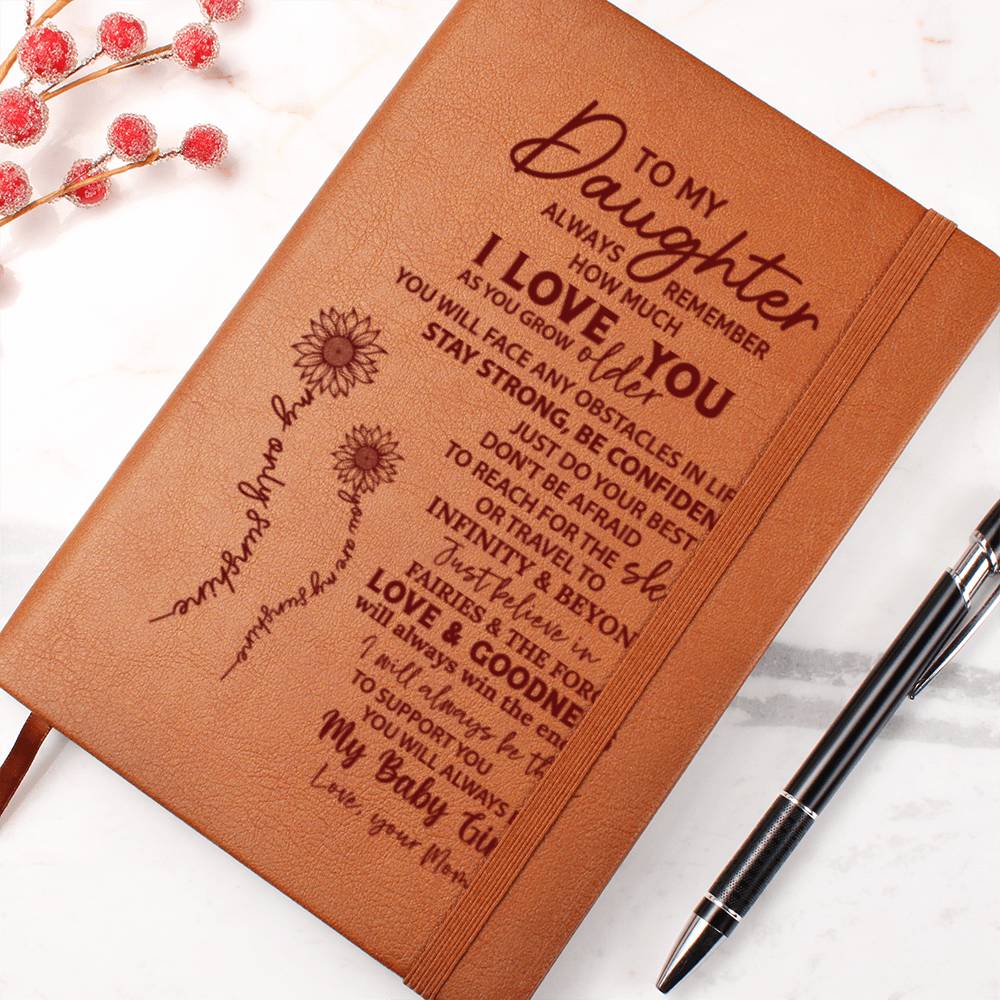 TO MY
Daughter
ALWAYS REMEMBER
HOW MUCH
I LOVE YOU
AS YOU GROW older
YOU WILL FACE ANY OBSTACLES IN LIF
STAY STRONG, BE CONFIDEN
JUST DO YOUR BEST
DON'T BE AFRAID
TO REACH FOR THE sk
OR TRAVEL TO
INFINITY & BEYON
Just believe in
FAIRIES & THE FORC
LOVE & GOODNE
will always win the en
I will always be th
TO SUPPORT YOU
YOU WILL ALWAYS
My Baby Gi
Love, your Mom
my only sunshine
you are my sunshine